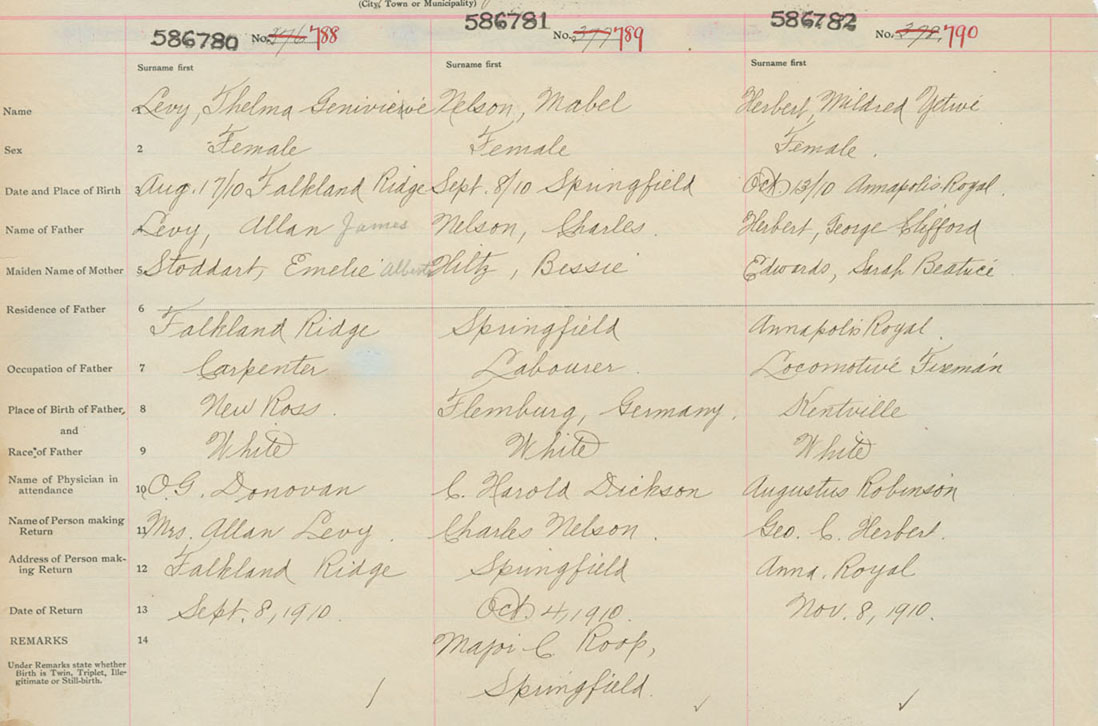 (City, Town or Municipality)
586780 No. 376 788
586781 No. 377 789
586782 No. 378 790
Surname first Surname first Surname first
Name 1 Levy, Thelma Genivieve Nelson, Mabel Herbert, Mildred
Sex 2 Female Female Female.
Date and Place of Birth 3 Aug. 17/10 Falkland Ridge Sept. 8/10 Springfield Oct. 13/10 Annapolis Royal.
Name of Father 4 Levy, Allan James Nelson, Charles. Herbert, George Clifford
Maiden Name of Mother 5 Stoddart, Emelie Alberta Hiltz, Bessie Edwards, Sarah Beatrice
Residence of Father 6 Falkland Ridge Springfield Annapolis Royal.
Occupation of Father 7 Carpenter Labourer. Locomotive Fireman
Place of Birth of Father, 8 New Ross. Flemburg, Germany. Kentville
and
Race of Father 9 White White White
Name of Physician in
attendance 10 O.G. Donovan C. Harold Dickson Augustus Robinson
Name of Person making
Return 11 Mrs. Allan Levy. Charles Nelson. Geo. C. Herbert.
Address of Person mak-
ing Return 12 Falkland Ridge Springfield Anna. Royal
Date of Return 13 Sept. 8, 1910. Oct 4, 1910. Nov. 8, 1910.
REMARKS 14 C Roop,
Under Remarks state whether
Birth is Twin, Triplet, Ille-
gitimate or Still-birth.
Springfield.